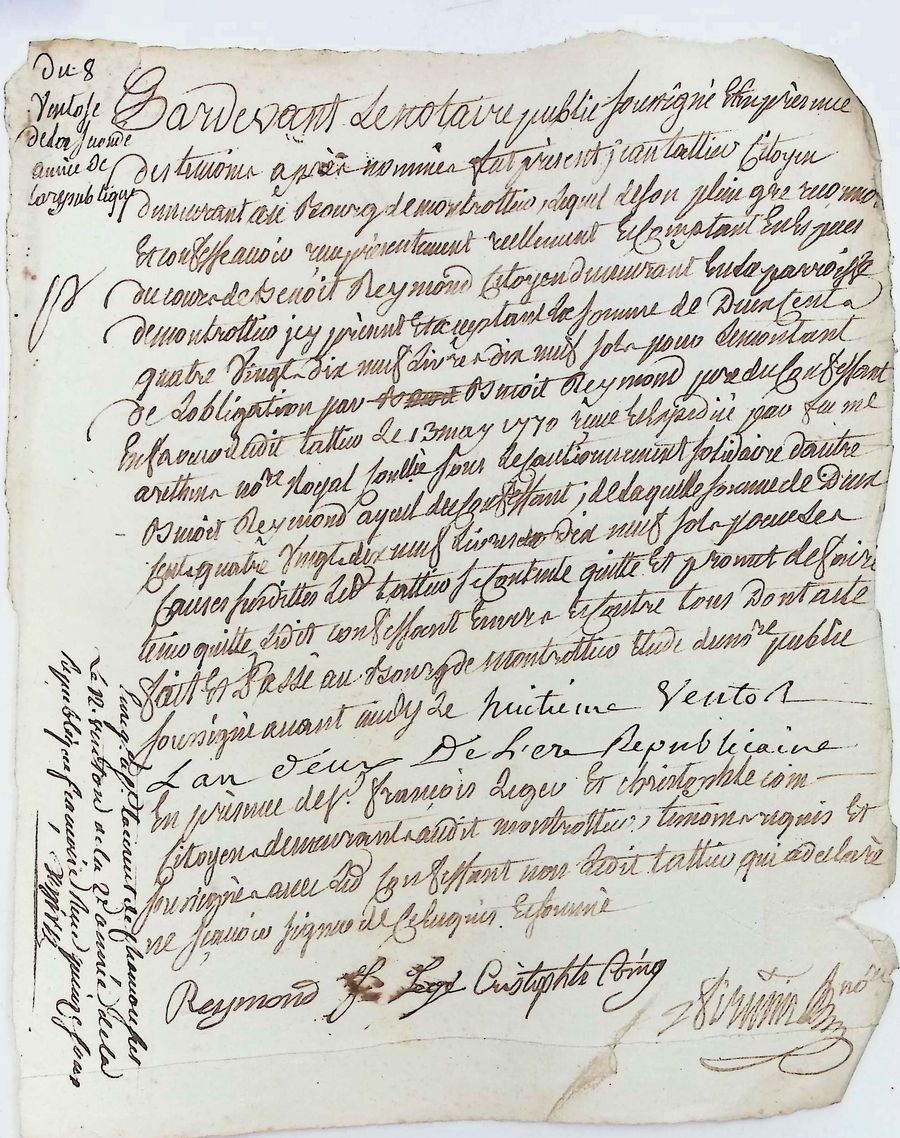 Du 8
Ventose
de la seconde
année de
la republique
Pardevant Le notaire public soussigné Et en présence
des témoins après nommés fut présent jean tattiu Citoyen
demeurant au Bourg de montrottier, Lequel de son plein gre reconnoi
Et confesse avoir reçu présentement réellement Et Comptant En Espèces
du cours de Benoit Reymond Citoyen demeurant En La parroisse
de montrottier jcy présent Et acceptant La somme de Deux Cents
quatre Vingts dix neuf Livres dix neuf sols pour Le montant
de L'obligation par Benoit Reymond pere du Confessant
En faveur dudit tattiu Le 13 may 1770 reçue Et Expédiée par feu me
notre Royal sous Le cautionnement solidaire d'autre
Benoit Reymond ayeul du Confessant, de laquelle somme de Deux
Cents quatre Vingts dix neuf Livres dix neuf sols pour Les
Causes susdittes Led tattiu se Contente quitte Et promet de faire
tenir quitte Ledit confessant Envers Et Contre tous Dont acte
fait Et Passé au Bourg de montrottier Etude du notre public
soussigné avant midy Le huitieme Ventose
L'an deux De L'ere Republicaine
En présence de sr françois Leger Et christophle com-
Citoyens demeurants audit montrottier, témoins requis Et
soussignés avec Led Confessant non Ledit tattiu qui a declaré
ne sçavoir signer de Ce Enquis Et sommé
Reymond Cristophle nore
Enreg. à st Laurent de Chamousset
Le 12 Ventose de la 2e année de la
république françoise Reçu quinze sous